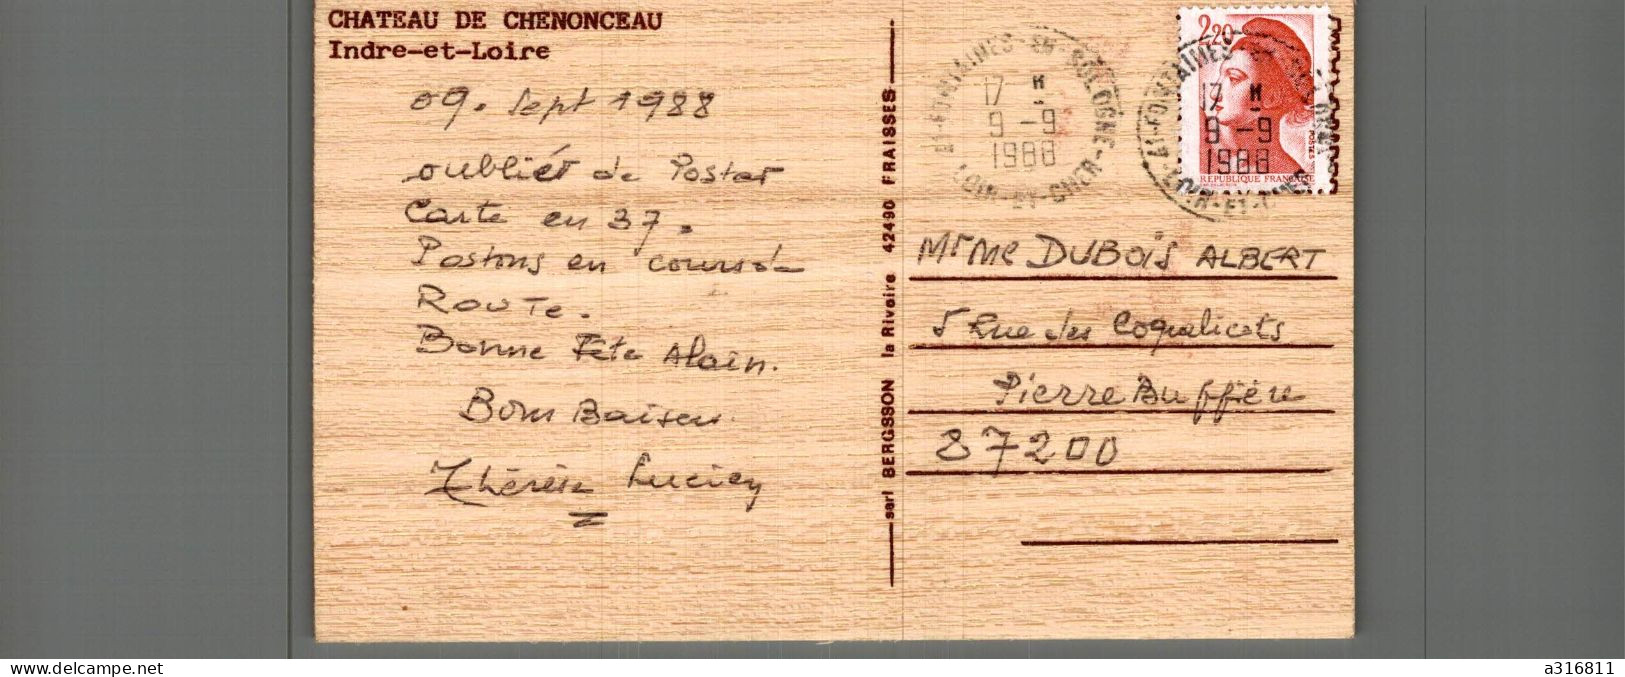 CHATEAU DE CHENONCEAU
Indre-et-Loire
09. Sept 1988
oublier de Poster
Carte en 37.
Postons en cours d
Route.
Bonne Fête Alain.
Bons Baisers
Thérèse Lucien
sarl BERGSSON la Rivoire 42490 FRAISSES
41-FONTAINES-EN-SOLOGNE
17 H
9-9
1988
LOIR-ET-CHER
2,20
POSTES
REPUBLIQUE FRANÇAISE
17 H
9-9
1988
LOIR-ET-CHER
Mr Me DUBOIS ALBERT
5 Rue des Coquelicots
Pierre Buffière
87200
www.delcampe.net
a316811